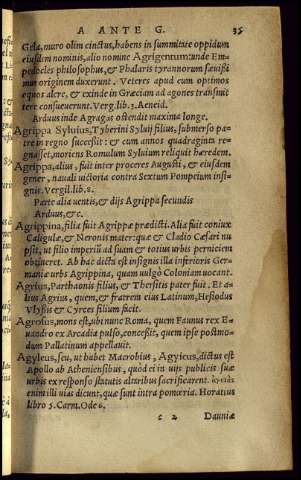 A ANTE G. 35
Gela, muro olim cinctus, habens in summitate oppidum
eiusdem nominis, alio nomine Agrigentum: unde Em-
pedocles philosophus, & Phalaris tyrannorum sæuissi
mus originem duxerunt. Veteres apud eum optimos
equos alere, & exinde in Græciam ad agones transmit
tere consueuerunt. Verg. lib. 3. Aeneid.
Arduus inde Agragas ostendit maxima longe.
Agrippa Syluius, Tyberini Syluij filius, submerso pa-
tre in regno successit: & cum annos quadraginta re-
gnasset, mortens Romulum Syluium reliquit hæredem.
Agrippa, alius, fuit inter proceres Augusti, & eiusdem
gener, nauali uictoria contra Sextum Pompeium insi-
gnis. Vergil. lib. 8.
Parte alia uentis, & dijs Agrippa secundis
Arduus, &c.
Agrippina, filia fuit Agrippæ prædicti. Alia fuit coniux
Caligulæ, & Neronis mater: quæ & Cladio Cæsari nu
psit, ut filio imperij ad suum & totius urbis perniciem
obtineret. Ab hac dicta est insignis illa inferioris Ger-
maniæ urbs Agrippina, quam uulgò Coloniam uocant.
Agrius, Parthaonis filius, & Thersitis pater fuit. Et a-
lius Agrius, quem, & fratrem eius Latinum, Hesiodus
Vlyssis & Cyrces filium facit.
Agrofus, mons est, ubi nunc Roma, quem Faunus rex E-
uandro ex Arcadia pulso, concessit, quem ipse postmo-
dum Pallatinum appellauit.
Agyleus, seu, ut habet Macrobius, Agyieus, dictus est
Apollo ab Atheniensibus, quòd ei in uijs publicis suæ
urbis ex responso statutis altaribus sacrificarent.
enim illi uias dicunt, quæ sunt intra pomœria. Horatius
libro 5. Carm. Ode 6.
c 2 Dauniæ